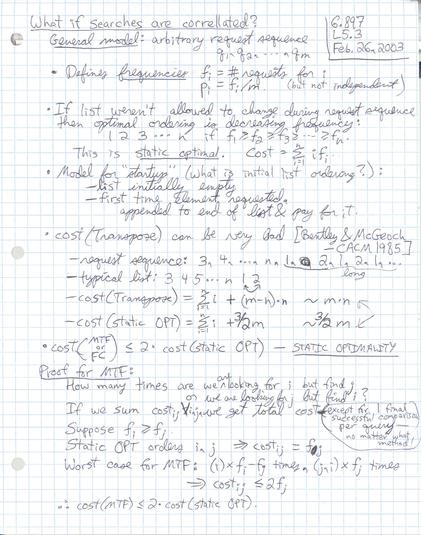 What if searches are correllated?
6.897
L5.3
Feb. 26, 2003
General model: arbitrary request sequence
q₁, q₂, ..., qm
• Defines frequencies fᵢ = # requests for i
pᵢ = fᵢ/m (but not independent)
• If list weren't allowed to change during request sequence
then optimal ordering is decreasing frequency:
1 2 3 ... n if f₁ ≥ f₂ ≥ f₃ ... ≥ fₙ.
This is static optimal. Cost = Σ i fᵢ
• Model for "startup" (what is initial list ordering?):
— list initially empty
— first time element requested,
appended to end of list & pay for it.
• cost(Transpose) can be very bad [Bentley & McGeoch
— CACM 1985]
— request sequence: 3, 4, ..., n, 1, 2, 1, 2, 1, ...
long
— typical list: 3 4 5 ... n 1 2
— cost(Transpose) = Σ i + (m-n)·n ~ m·n
— cost(static OPT) = Σ i + 3/2 m ~ 3/2 m
• cost(MTF or FC) ≤ 2 · cost(static OPT) — STATIC OPTIMALITY
Proof for MTF:
How many times are we looking for i but find j
or we are looking for j but find i?
If we sum costᵢⱼ ∀i,j, we get total cost
except for 1 final
successful comparison
per query —
no matter what
method!
Suppose fᵢ ≥ fⱼ.
Static OPT orders i, j ⇒ costᵢⱼ = fⱼ
Worst case for MTF: (i) × fᵢ-fⱼ times, (j, i) × fⱼ times
⇒ costᵢⱼ ≤ 2fⱼ
∴ cost(MTF) ≤ 2 · cost(static OPT).